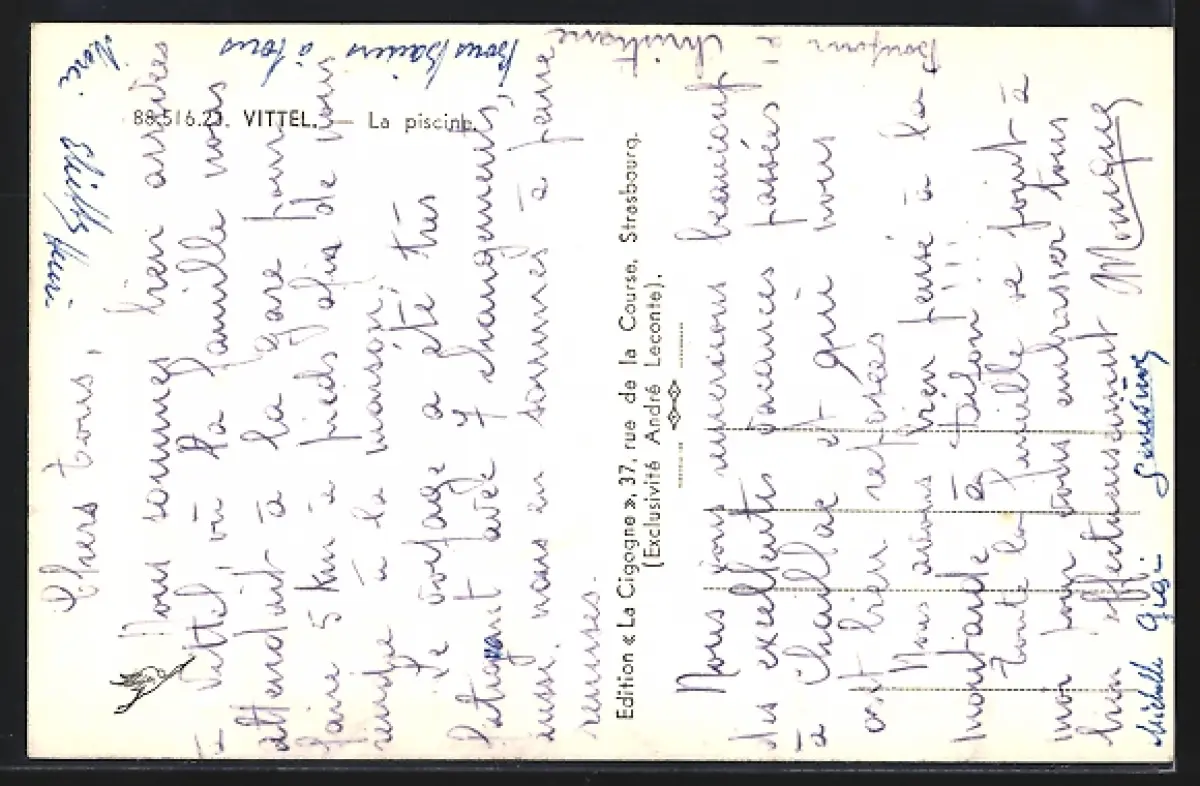 88.516.21. VITTEL. — La piscine.
Chers tous,
Nous sommes bien arrivées
à Vittel, où la famille nous
attendait à la gare pour
faire 5 km à pieds afin de nous
rendre à la maison.
Le voyage a été très
fatigant avec 7 changements,
aussi nous en sommes à peine
remises.
Bons Baisers à tous
Bonjour à Christiane
Edition « La Cigogne », 37, rue de la Course, Strasbourg.
(Exclusivité André Leconte).
Nous vous remercions beaucoup
des excellentes vacances passées
à Chaillac et qui nous
ont bien reposées
Nous avons bien pensé à la
moutarde à Dijon !!!
Toute la famille se joint à
moi pour vous embrasser tous
bien affectueusement Monique
Michelle Gigi